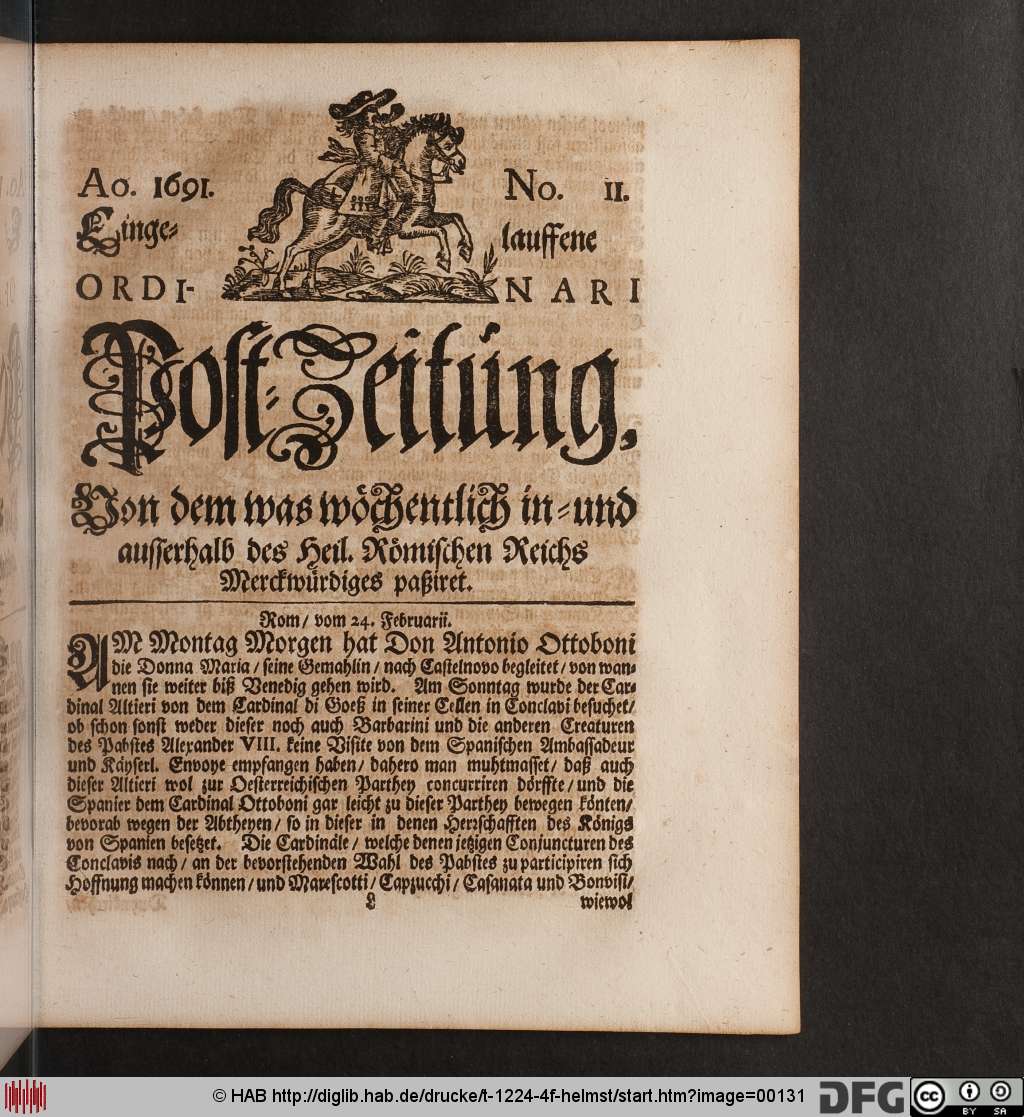 Ao. 1691. No. 11.
Einge- lauffene
ORDI- NARI
Post-Zeitung,
Von dem was wöchentlich in- und
ausserhalb des Heil. Römischen Reichs
Merckwürdiges paßiret.
Rom/ vom 24. Februarii.
AM Montag Morgen hat Don Antonio Ottoboni
die Donna Maria/ seine Gemahlin/ nach Castelnovo begleitet/ von wan-
nen sie weiter biß Venedig gehen wird. Am Sonntag wurde der Car-
dinal Altieri von dem Cardinal di Goeß in seiner Cellen in Conclavi besuchet/
ob schon sonst weder dieser noch auch Barbarini und die anderen Creaturen
des Pabstes Alexander VIII. keine Visite von dem Spanischen Ambassadeur
und Käyserl. Envoye empfangen haben/ dahero man muhtmasset/ daß auch
dieser Altieri wol zur Oesterreichischen Parthey concurriren dörffte/ und die
Spanier dem Cardinal Ottoboni gar leicht zu dieser Parthey bewegen könten/
bevorab wegen der Abtheyen/ so in dieser in denen Herrschafften des Königs
von Spanien besetzet. Die Cardinäle/ welche denen jetzigen Conjuncturen des
Conclavis nach/ an der bevorstehenden Wahl des Pabstes zu participiren sich
Hoffnung machen können/ und Marescotti/ Capzucchi/ Casanata und Bonvisi/
L wiewol
© HAB http://diglib.hab.de/drucke/t-1224-4f-helmst/start.htm?image=00131
DFG
cc
BY SA